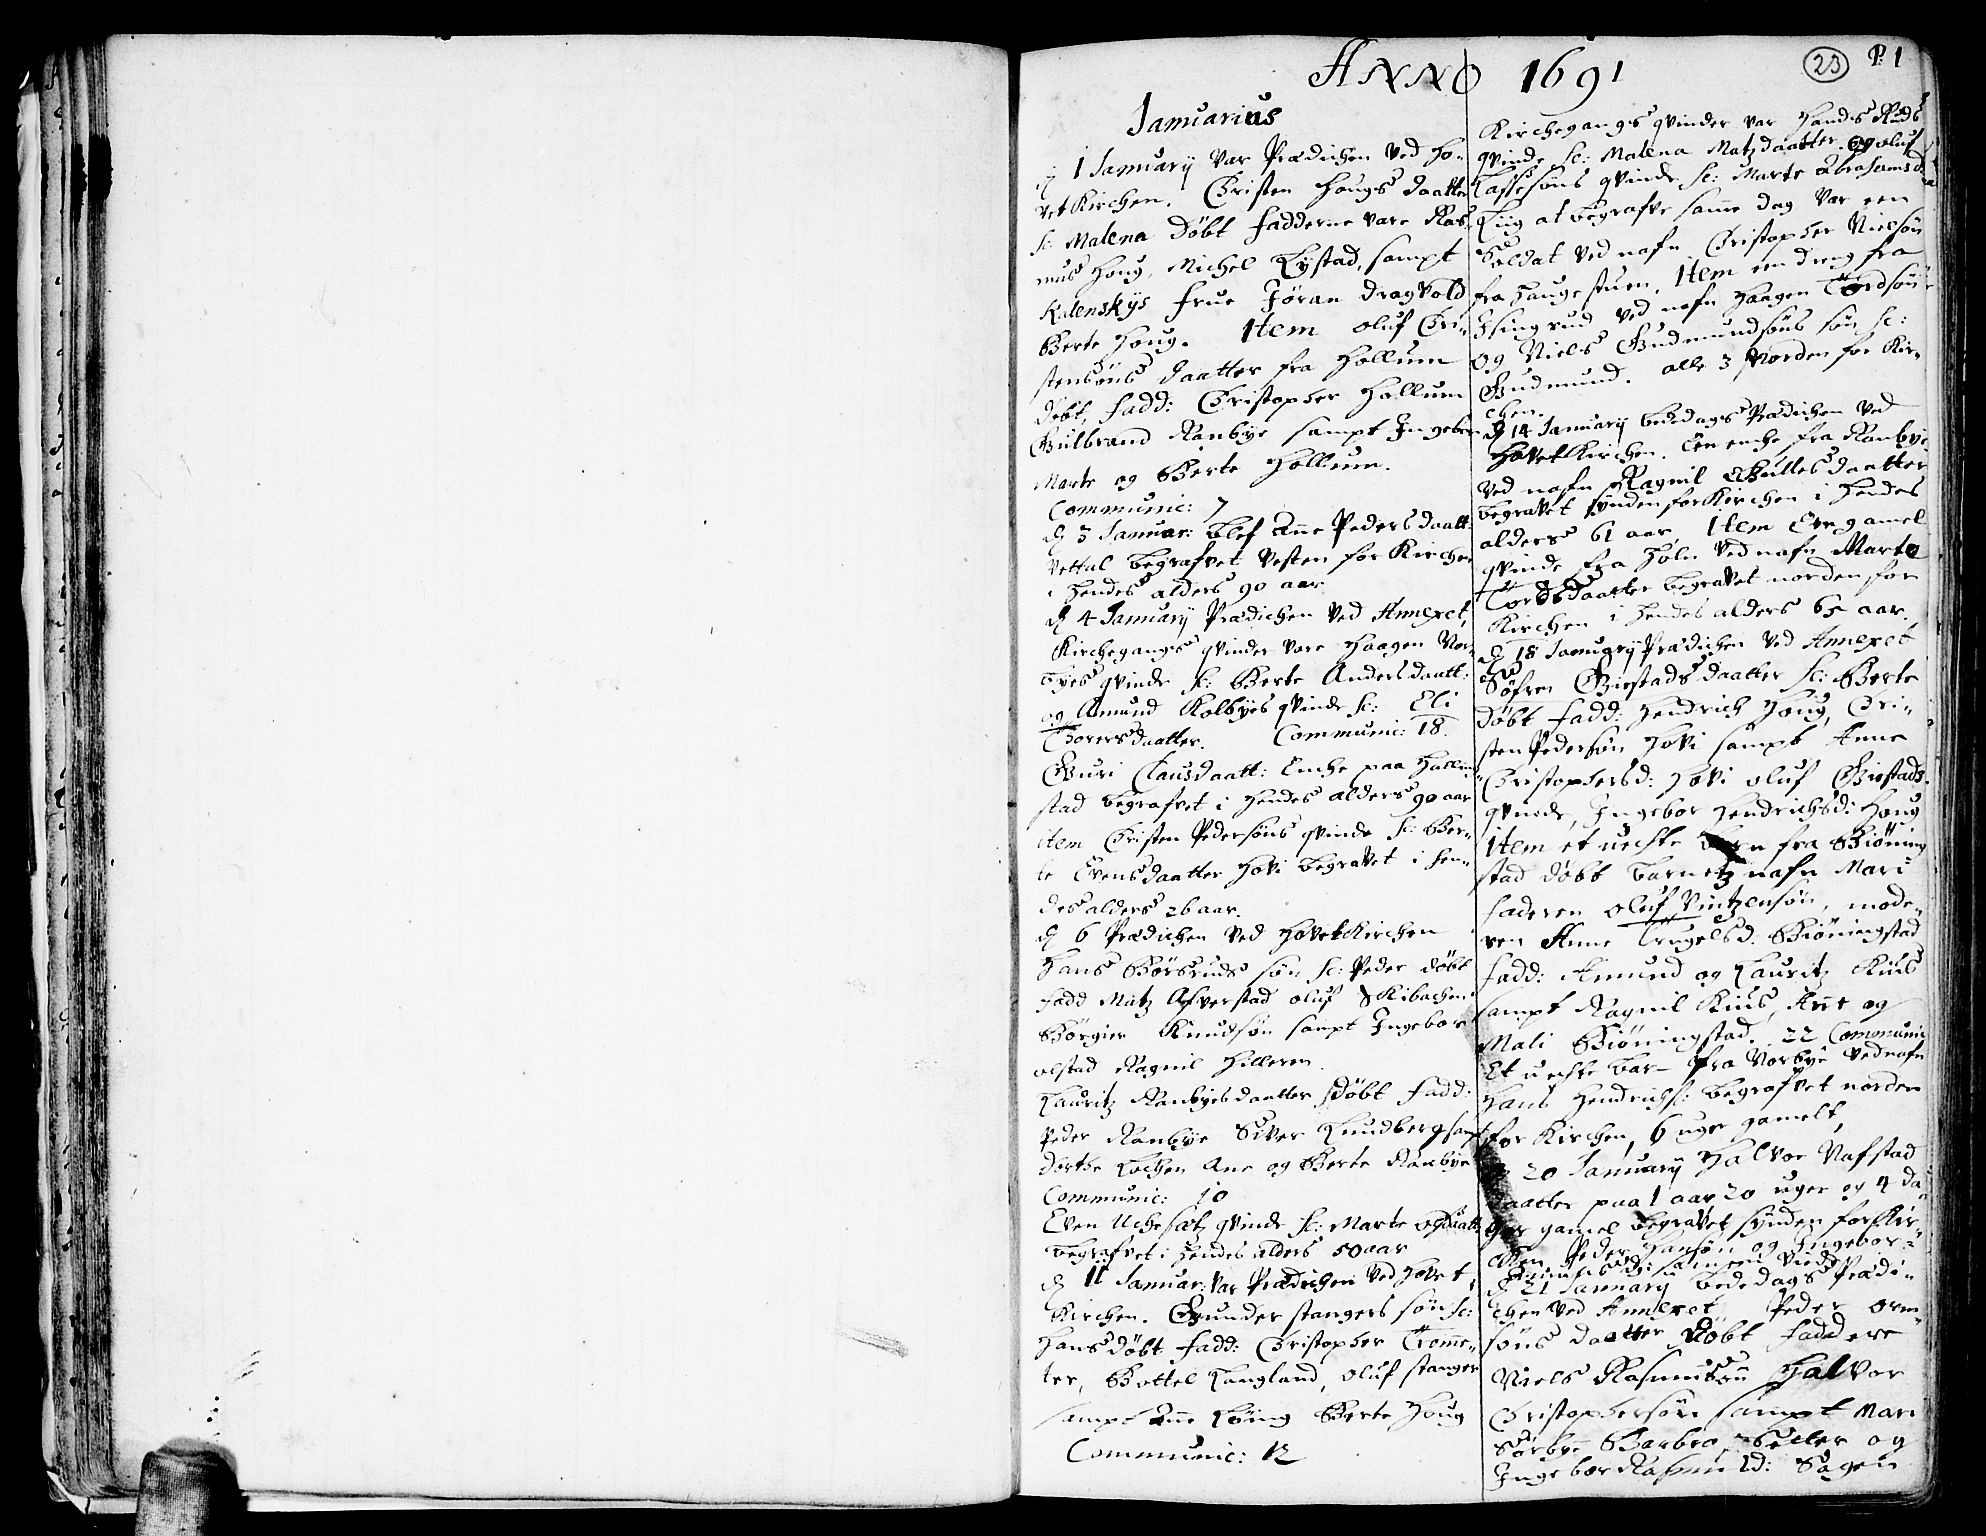 23
P. 1
ANNO 1691
Januarius
d 1 January var Prædichen ved Ho-
vet Kirchen. Christen Hougs daatter
sc: Malena Döbt fadderne vare Ras-
mus Houg, Michel Lystad, sampt
Kalenskys frue Jöran Dragvold
Berte Houg. Item Oluf Chri-
stensöns daatter fra Hollum
döbt, fadd: Christopher Hollum
Gulbrand Ranbye sampt Ingebor
Marte og Berte Hollum.
Communic: 7
d 3 Januar: blef Anne Pedersdaatt:
Vettal begrafvet Vesten for Kirchen
i hendes alders 90 aar
d 4 January Prædichen ved Annexet,
Kirchegangs qvinder vare Haagen Nor-
byes qvinde sc: Berte Andersdaatt:
og Amund Kolbyes qvinde sc: Eli
Thorersdaatter. Communic: 18.
Guri Clausdaatt: Enche paa Hallin-
stad begrafvet i hendes alders 90 aar
item Christen Pedersöns qvinde sc: Ber-
te Evensdaatter Hovi begravet i hen-
des alders 26 aar.
d 6 Prædichen ved Hovet Kirchen
Hans Börsruds sön sc: Peder döbt
fadd Matz Asverstad Oluf Skibachen
Börgier Knudsön sampt Ingebor
Olstad Ragnil Hilleren.
Lauritz Ranbyes daatter döbt fadd:
Peder Ranbye Siver Lundberg sampt
Dorthe Lochen Ane og Berte Ranbye
Communic: 10
Even Uchesætz qvinde sc: Marte daatt:
begrafvet i hendes alders 50 aar
d 11 Januar: var Prædichen ved Hovet
Kirchen. Gunder Stangers sön sc:
Hans döbt fadd: Christopher Trome-
ter, Bottel Langland, Oluf Stanger
sampt Anne Löing Berte Houg
Communic: 12
Kirchegangs qvinder var Hans Ruds
qvinde sc: Malena Matzdaatter. og Oluf
Lassesöns qvinde sc: Marte Abrahamsd
Liig at begrafve samme dag var een
Soldat ved nafn Christopher Nielsön
fra Haugestuen. Item een dreng fra
Isingrud ved nafn Haagen Tordsön
og Niels Gudmundsöns sön sc:
Gudmund. alle 3 Norden for Kir-
chen.
d 14 January bededags Prædichen ved
Hovet Kirchen. Een enche fra Ranbye
ved nafn Ragnil Guttesdaatter
begravet synden for Kirchen i hendes
alders 61 aar, Item Een gamel
qvinde fra Holn ved nafn Marte
Tordsdaatter begravet norden for
Kirchen i hendes alders 65 aar.
d 18 January Prædichen ved Annexet
Söfren Giestads daatter sc: Berte
döbt fadd: Hendrich Houg, Chri-
sten Pedersön Hovi sampt Anne
Christophersd: Hovi Oluf Giestads
qvinde, Ingebor Hendrichsd: Houg
Item et uechte barn fra Biöning
stad döbt barnetz nafn Mari
faderen Oluf Vintzensön, mode-
ren Anne Trugelsd. Biöningstad
fadd: Amund og Lauritz Kius
sampt Ragnil Kius, Anne og
Mali Biöningstad. 22 Communic
Et uechte bar- fra Norbye ved nafn
Hans Hendrichs: begrafvet norden
for Kirchen, 6 uger gamelt,
d 20 January Halvor Nafstad
daatter paa 1 aar 20 uger og 4 da-
ger gamel begravet synden for Kir-
chen Peder Hansön og Ingebor
samen viede
d 21 January bededags Prædi-
chen ved Annexet Peder Orm-
söns daatter döbt faddere
Niels Rasmusön Halvor
Christophersön sampt Mari
Sörbye Barbro Seller og
Ingebor Rasmusd: Sogen